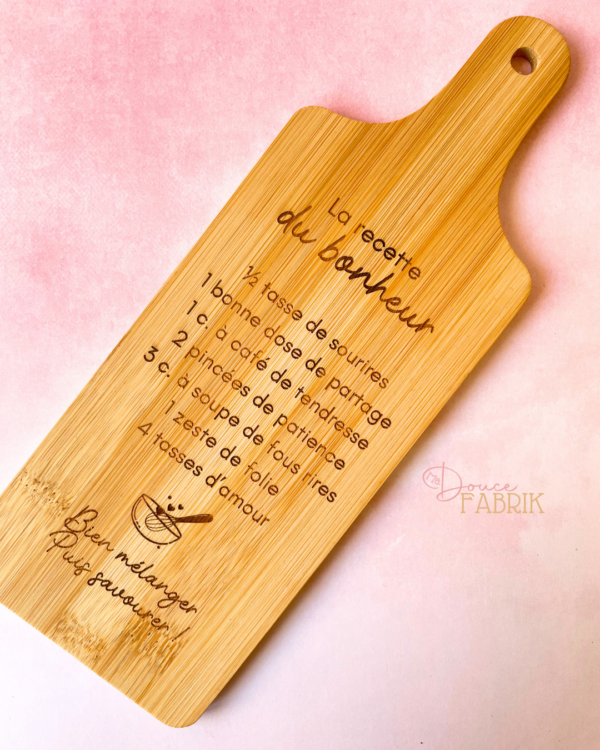 La recette
du bonheur
½ tasse de sourires
1 bonne dose de partage
1 c. à café de tendresse
2 pincées de patience
3 c. à soupe de fous rires
1 zeste de folie
4 tasses d'amour
Bien mélanger
Puis savourer !
Douce
FABRIK